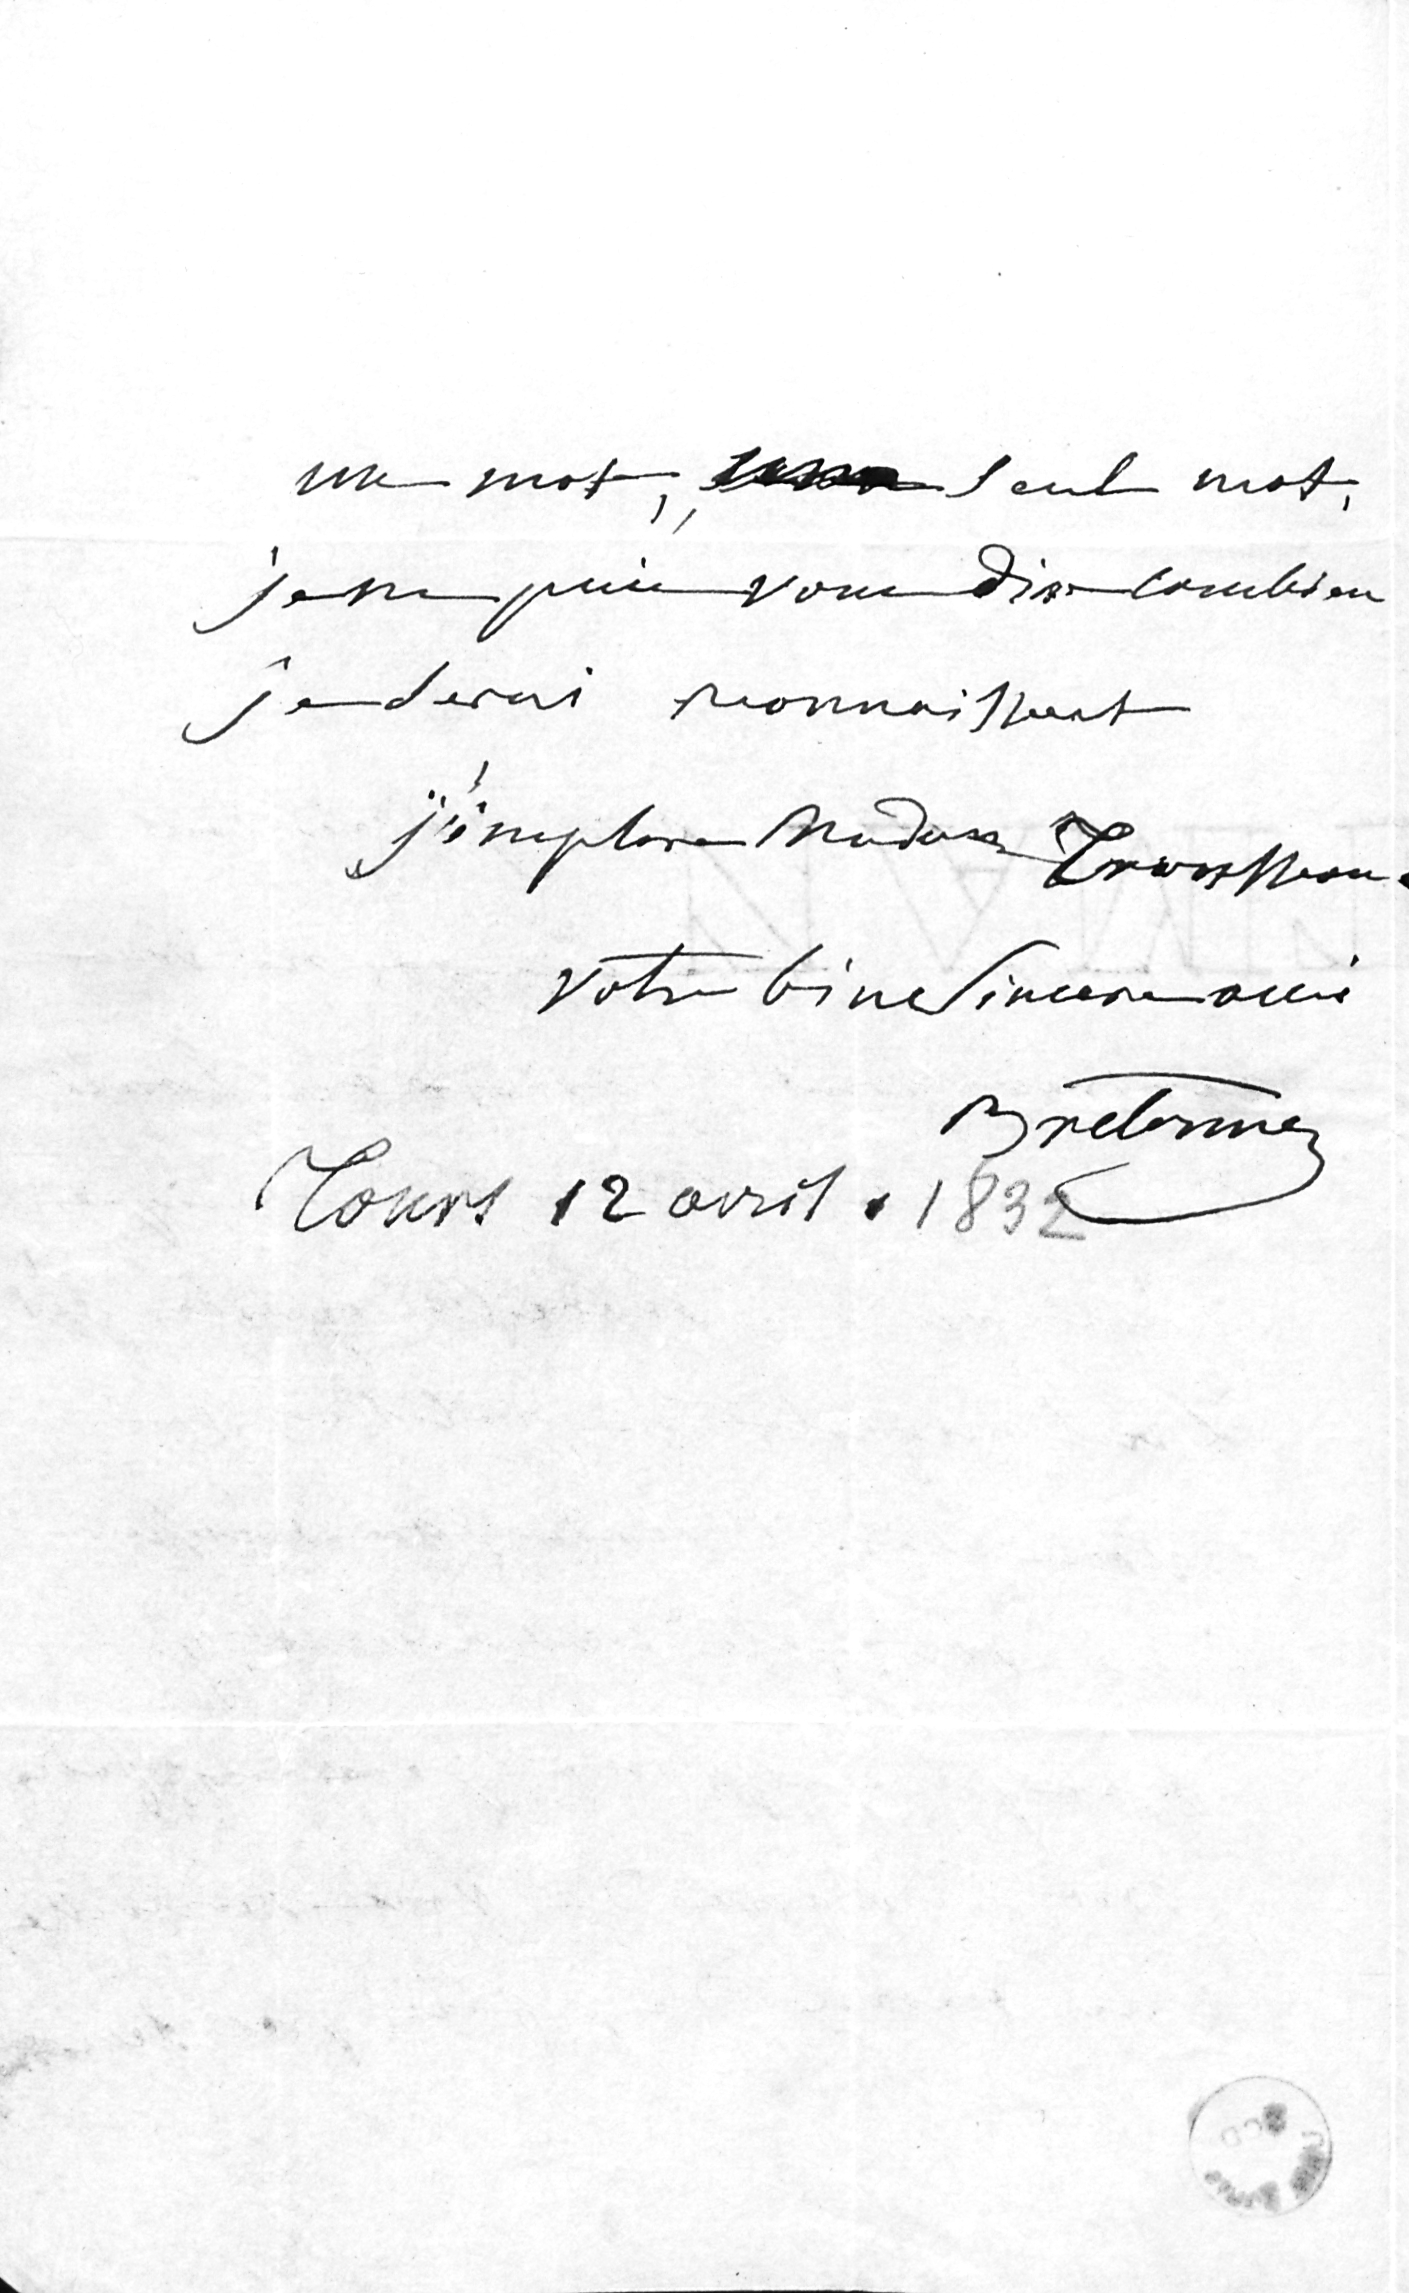 un mot, seul mot,
je ne puis vous dire combien
je serai reconnaissant
j'implore Madame Trousseau.
votre bien sincere ami
Bretonneau
Tours 12 avril. 1832